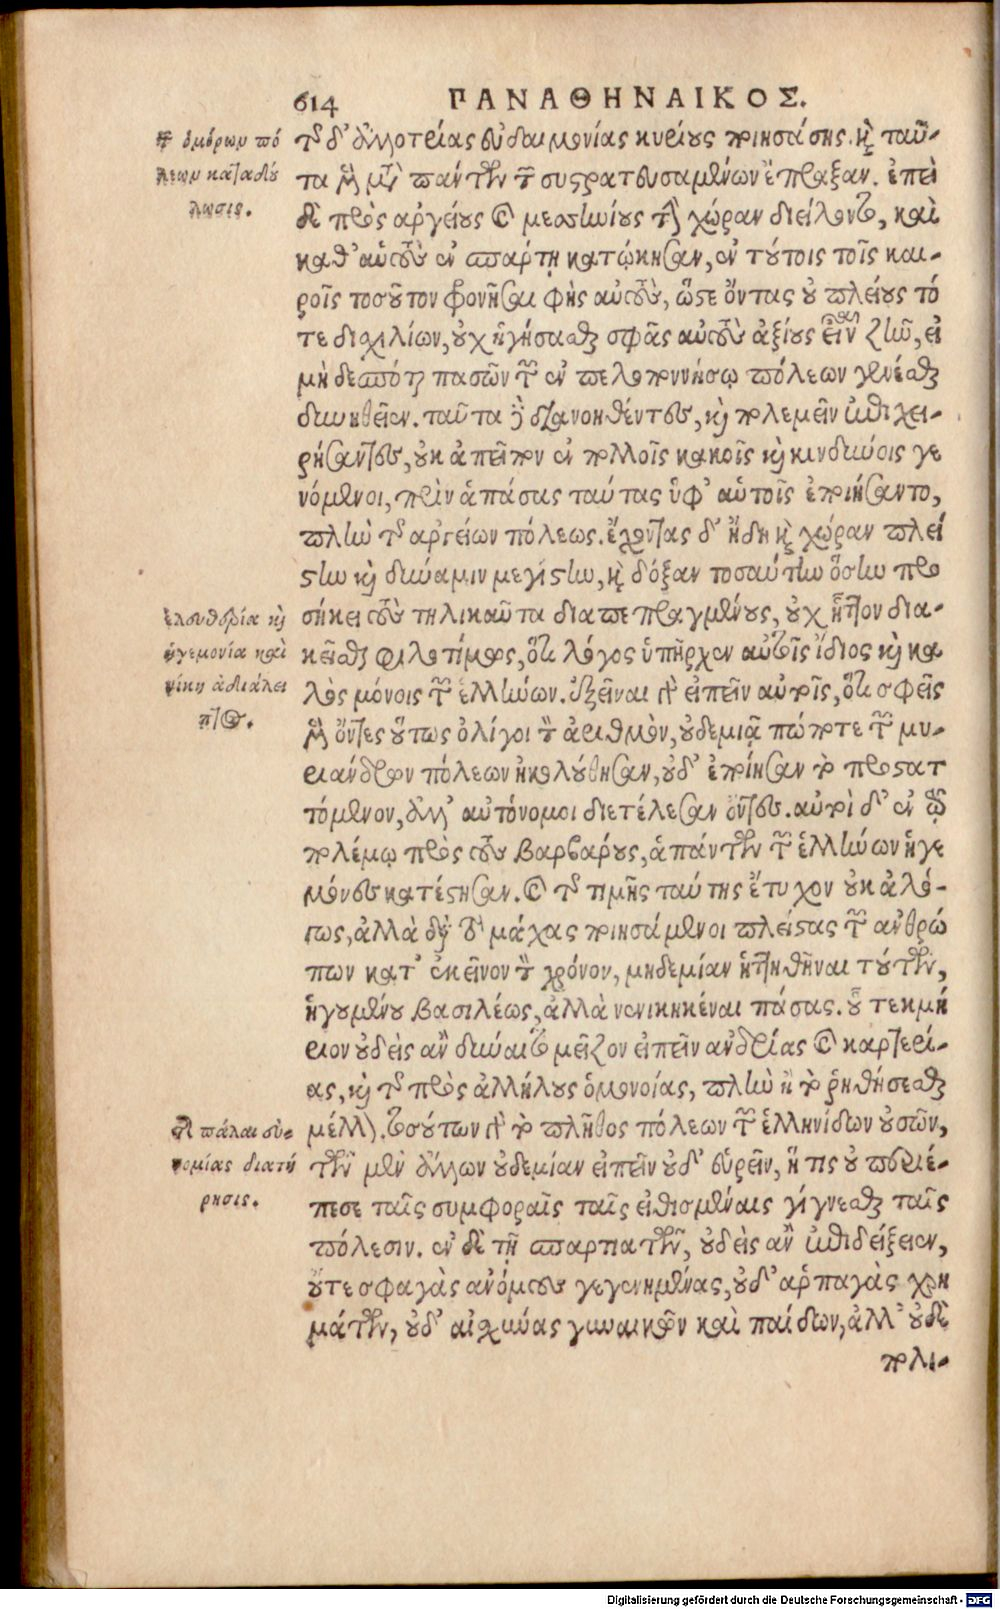 614 ΠΑΝΑΘΗΝΑΙΚΟΣ.
τῆς δ' ἀλλοτρίας εὐδαιμονίας κυρίους ποιησάσης. καὶ ταῦ-
τα μὲν μετὰ πάντων τῶν συστρατευσαμένων ἔπραξαν. ἐπεὶ
δὲ πρὸς ἀργείους καὶ μεσσηνίους τὴν χώραν διείλοντο, καὶ
καθ' αὑτοὺς ἐν σπάρτῃ κατῴκησαν, ἐν τούτοις τοῖς και-
ροῖς τοσοῦτον φρονῆσαι φῂς αὐτοὺς, ὥστε ὄντας οὐ πλείους τό
τε διχιλίων, οὐχ ἡγήσασθαι σφᾶς αὐτοὺς ἀξίους εἶναι ζῆν, εἰ
μὴ δεσπόται πασῶν τῶν ἐν πελοποννήσῳ πόλεων γενέσθαι
δυνηθεῖεν. ταῦτα δὲ διανοηθέντες, καὶ πολεμεῖν ἐπιχει-
ρήσαντες, οὐκ ἀπεῖπον ἐν πολλοῖς κακοῖς καὶ κινδύνοις γε
νόμενοι, πρὶν ἁπάσας ταύτας ὑφ' αὑτοῖς ἐποιήσαντο,
πλὴν τῆς ἀργείων πόλεως. ἔχοντας δ' ἤδη καὶ χώραν πλεί
στην καὶ δύναμιν μεγίστην, καὶ δόξαν τοσαύτην ὅσην προ
σήκει τοὺς τηλικαῦτα διαπεπραγμένους, οὐχ ἧττον δια-
κεῖσθαι φιλοτίμως, ὅτι λόγος ὑπῆρχεν αὐτοῖς ἴδιος καὶ κα
λὸς μόνοις τῶν ἑλλήνων. ἐξεῖναι γὰρ εἰπεῖν αὐτοῖς, ὅτι σφεῖς
μὲν ὄντες οὕτως ὀλίγοι τὸν ἀριθμὸν, οὐδεμιᾷ πώποτε τῶν μυ-
ριάνδρων πόλεων ἠκολούθησαν, οὐδ' ἐποίησαν τὸ προστατ
τόμενον, ἀλλ' αὐτόνομοι διετέλεσαν ὄντες. αὐτοὶ δ' ἐν τῷ
πολέμῳ πρὸς τοὺς βαρβάρους, ἁπάντων τῶν ἑλλήνων ἡγε
μόνες κατέστησαν. καὶ τῆς τιμῆς ταύτης ἔτυχον οὐκ ἀλό-
γως, ἀλλὰ διὰ τὸ μάχας ποιησάμενοι πλείστας τῶν ἀνθρώ
πων κατ' ἐκεῖνον τὸν χρόνον, μηδεμίαν ἡττηθῆναι τούτων,
ἡγουμένου βασιλέως, ἀλλὰ νενικηκέναι πάσας. οὗ τεκμή
ριον οὐδεὶς ἂν δύναιτο μεῖζον εἰπεῖν ἀνδρίας καὶ καρτερί-
ας, καὶ τῆς πρὸς ἀλλήλους ὁμονοίας, πλὴν ἢ τὸ ῥηθήσεσθαι
μέλλον. τοσούτων γὰρ τὸ πλῆθος πόλεων τῶν ἑλληνίδων οὐσῶν,
τῶν μὲν ἄλλων οὐδεμίαν εἰπεῖν οὐδ' εὑρεῖν, ἥ τις οὐ περιέ-
πεσε ταῖς συμφοραῖς ταῖς εἰθισμέναις γίγνεσθαι ταῖς
πόλεσιν. ἐν δὲ τῇ σπαρτιατῶν, οὐδεὶς ἂν ἐπιδείξειεν,
οὔτε σφαγὰς ἀνόμους γεγενημένας, οὐδ' ἁρπαγὰς χρη
μάτων, οὐδ' αἰσχύνας γυναικῶν καὶ παίδων, ἀλλ' οὐδὲ
πολι-
ὁμόρων πό
λεων καταδού
λωσις.
ἐλευθερία καὶ
ἡγεμονία καὶ
νίκη ἀδιάλει
πτος.
πάλαι εὐ-
νομίας διατή
ρησις.
Digitalisierung gefördert durch die Deutsche Forschungsgemeinschaft - DFG